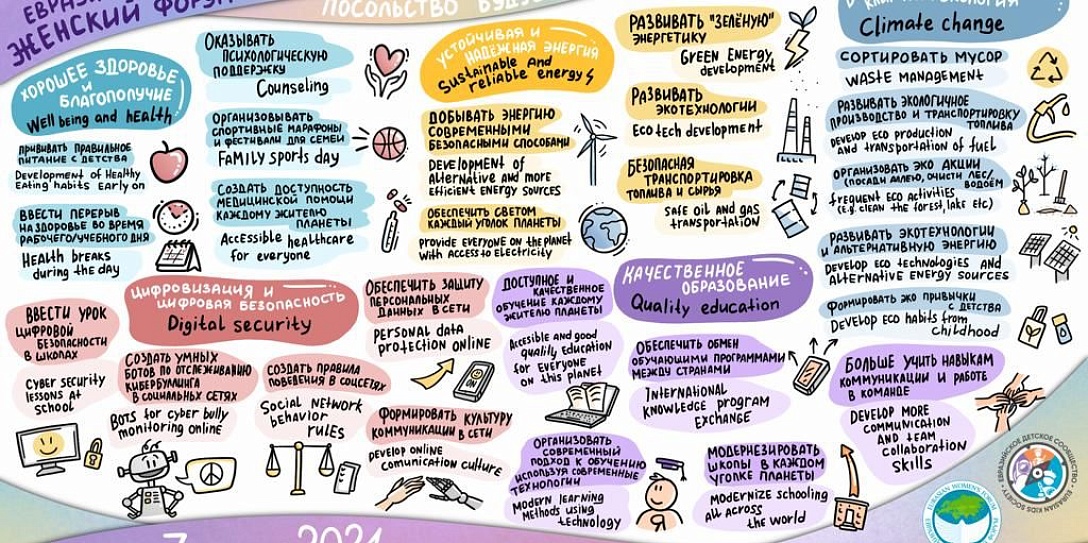 ЖЕНСКИЙ ФОРУМ
ПОСОЛЬСТВО
ХОРОШЕЕ ЗДОРОВЬЕ
И
БЛАГОПОЛУЧИЕ
Well being and health
ПРИВИВАТЬ ПРАВИЛЬНОЕ
ПИТАНИЕ С ДЕТСТВА
Development of Healthy
Eating habits early on
ВВЕСТИ ПЕРЕРЫВ
НА ЗДОРОВЬЕ ВО ВРЕМЯ
РАБОЧЕГО/УЧЕБНОГО ДНЯ
Health breaks
during the day
ОКАЗЫВАТЬ
ПСИХОЛОГИЧЕСКУЮ
ПОДДЕРЖКУ
Counseling
ОРГАНИЗОВЫВАТЬ
СПОРТИВНЫЕ МАРАФОНЫ
И ФЕСТИВАЛИ ДЛЯ СЕМЕЙ
FAMILY sports day
СОЗДАТЬ ДОСТУПНОСТЬ
МЕДИЦИНСКОЙ ПОМОЩИ
КАЖДОМУ ЖИТЕЛЮ
ПЛАНЕТЫ
Accessible healthcare
for everyone
УСТОЙЧИВАЯ И
НАДЁЖНАЯ ЭНЕРГИЯ
Sustainable and
reliable energy
ДОБЫВАТЬ ЭНЕРГИЮ
СОВРЕМЕННЫМИ
БЕЗОПАСНЫМИ СПОСОБАМИ
DEVELOPMENT of
Alternative and more
efficient energy sources
ОБЕСПЕЧИТЬ СВЕТОМ
КАЖДЫЙ УГОЛОК ПЛАНЕТЫ
Provide everyone on the planet
with access to electricity
РАЗВИВАТЬ "ЗЕЛЁНУЮ"
ЭНЕРГЕТИКУ
GREEN Energy
development
РАЗВИВАТЬ
ЭКОТЕХНОЛОГИИ
Eco tech development
БЕЗОПАСНАЯ
ТРАНСПОРТИРОВКА
ТОПЛИВА И СЫРЬЯ
Safe oil and gas
transportation
Climate change
СОРТИРОВАТЬ МУСОР
WASTE MANAGEMENT
РАЗВИВАТЬ ЭКОЛОГИЧНОЕ
ПРОИЗВОДСТВО И ТРАНСПОРТИРОВКУ
ТОПЛИВА
DEVELOP ECO production
and transportation of fuel
ОРГАНИЗОВАТЬ ЭКО АКЦИИ
(ПОСАДИ АЛЛЕЮ, ОЧИСТИ ЛЕС/
ВОДОЁМ
frequent ECO activities
(E.g. clean the forest, lake etc)
РАЗВИВАТЬ ЭКОТЕХНОЛОГИИ
И АЛЬТЕРНАТИВНУЮ ЭНЕРГИЮ
DEVELOP ECO technologies and
alternative ENERGY SOURCES
ФОРМИРОВАТЬ ЭКО ПРИВЫЧКИ
С ДЕТСТВА
DEVELOP ECO habits from
childhood
ЦИФРОВИЗАЦИЯ И
ЦИФРОВАЯ БЕЗОПАСНОСТЬ
Digital security
ВВЕСТИ УРОК
ЦИФРОВОЙ
БЕЗОПАСНОСТИ
В ШКОЛАХ
Cyber security
lessons at
school
СОЗДАТЬ УМНЫХ
БОТОВ ПО ОТСЛЕЖИВАНИЮ
КИБЕРБУЛЛИНГА
В СОЦИАЛЬНЫХ СЕТЯХ
BOTS for cyber bully
monitoring online
СОЗДАТЬ ПРАВИЛА
ПОВЕДЕНИЯ В СОЦСЕТЯХ
Social network
behavior
rules
ОБЕСПЕЧИТЬ ЗАЩИТУ
ПЕРСОНАЛЬНЫХ
ДАННЫХ В СЕТИ
PERSONAL data
protection online
ON
ФОРМИРОВАТЬ КУЛЬТУРУ
КОММУНИКАЦИИ В СЕТИ
DEVELOP online
comunication culture
КАЧЕСТВЕННОЕ
ОБРАЗОВАНИЕ
Quality education
ДОСТУПНОЕ И
КАЧЕСТВЕННОЕ
ОБУЧЕНИЕ КАЖДОМУ
ЖИТЕЛЮ ПЛАНЕТЫ
Accesible and good
quality education
for everyone
on this planet
ОРГАНИЗОВАТЬ
СОВРЕМЕННЫЙ
ПОДХОД К ОБУЧЕНИЮ
ИСПОЛЬЗУЯ СОВРЕМЕННЫЕ
ТЕХНОЛОГИИ
Modern learning
Methods using
technology
ОБЕСПЕЧИТЬ ОБМЕН
ОБУЧАЮЩИМИ ПРОГРАММАМИ
МЕЖДУ СТРАНАМИ
INTERNATIONAL
knowledge program
EXCHANGE
МОДЕРНЕЗИРОВАТЬ
ШКОЛЫ В КАЖДОМ
УГОЛКЕ ПЛАНЕТЫ
Modernize schooling
all across
the world
БОЛЬШЕ УЧИТЬ НАВЫКАМ
КОММУНИКАЦИИ И РАБОТЕ
В КОМАНДЕ
DEVELOP MORE
communication
AND team
collaboration
skills
ЕВРАЗИЙСКОЕ ДЕТСКОЕ СООБЩЕСТВО
EURASIAN KIDS SOCIETY
EURASIAN WOMEN'S FORUM